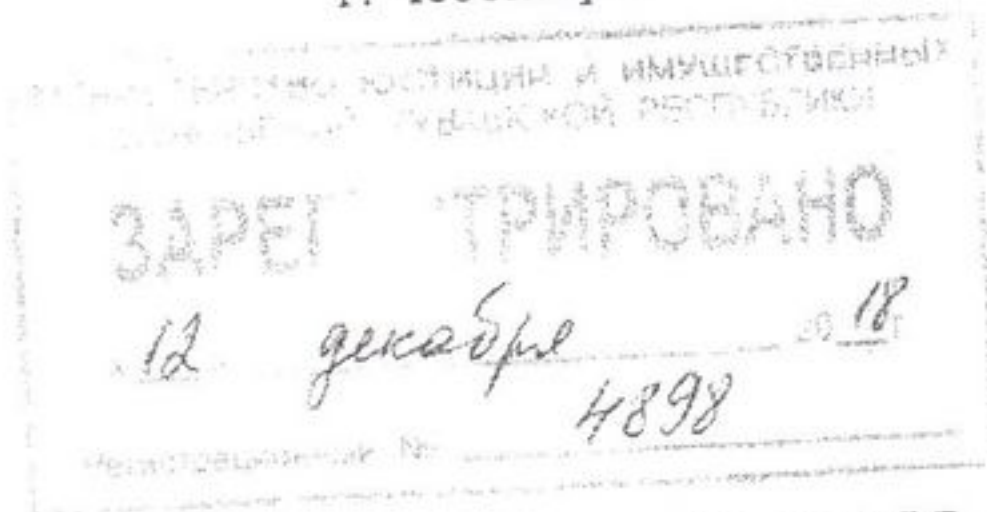 ЮСТИЦИИ И ИМУЩЕСТВЕННЫХ
ЧУВАШСКОЙ РЕСПУБЛИКИ
ЗАРЕГ ТРИРОВАНО
12 декабря 2018 г
4898
Регистрационный №